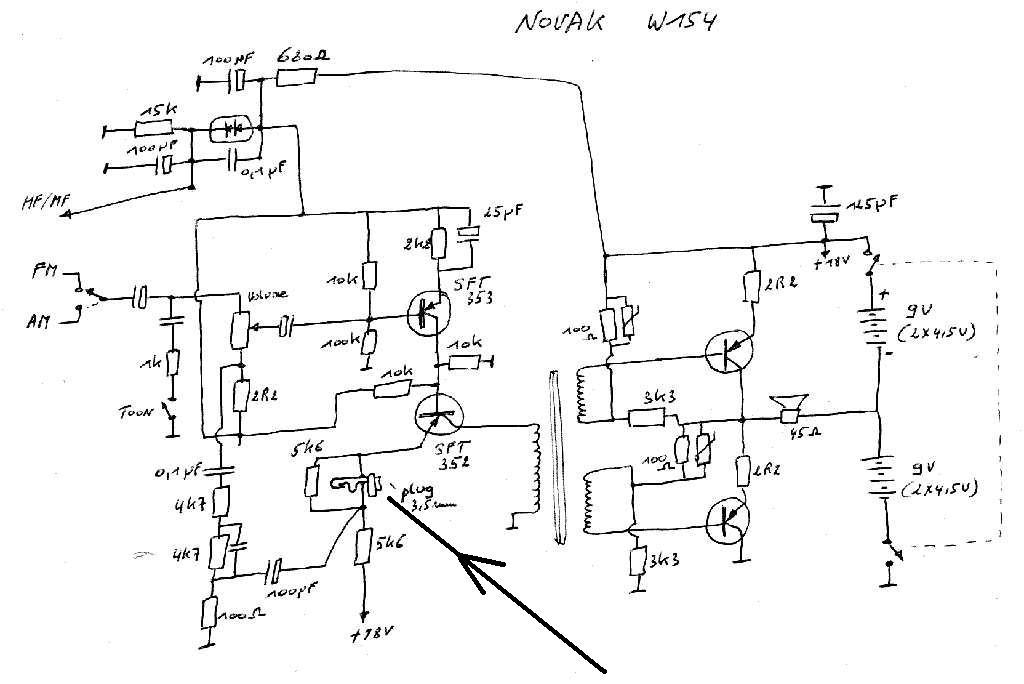 NOVAK W154
100µF 680Ω
15k
100µF
0,1µF
MF/MF
25µF
2k2
125µF
+18V
FM
AM
Volume
10k
SFT
353
100k
10k
1k
10k
TOON
2R2
SFT
352
5k6
0,1µF
4k7
plug
3,5mm
5k6
4k7
100µF
100Ω
+18V
2R2
100
Ω
+
9V
(2x4,5V)
-
3k3
45Ω
100
Ω
2R2
9V
(2x4,5V)
3k3